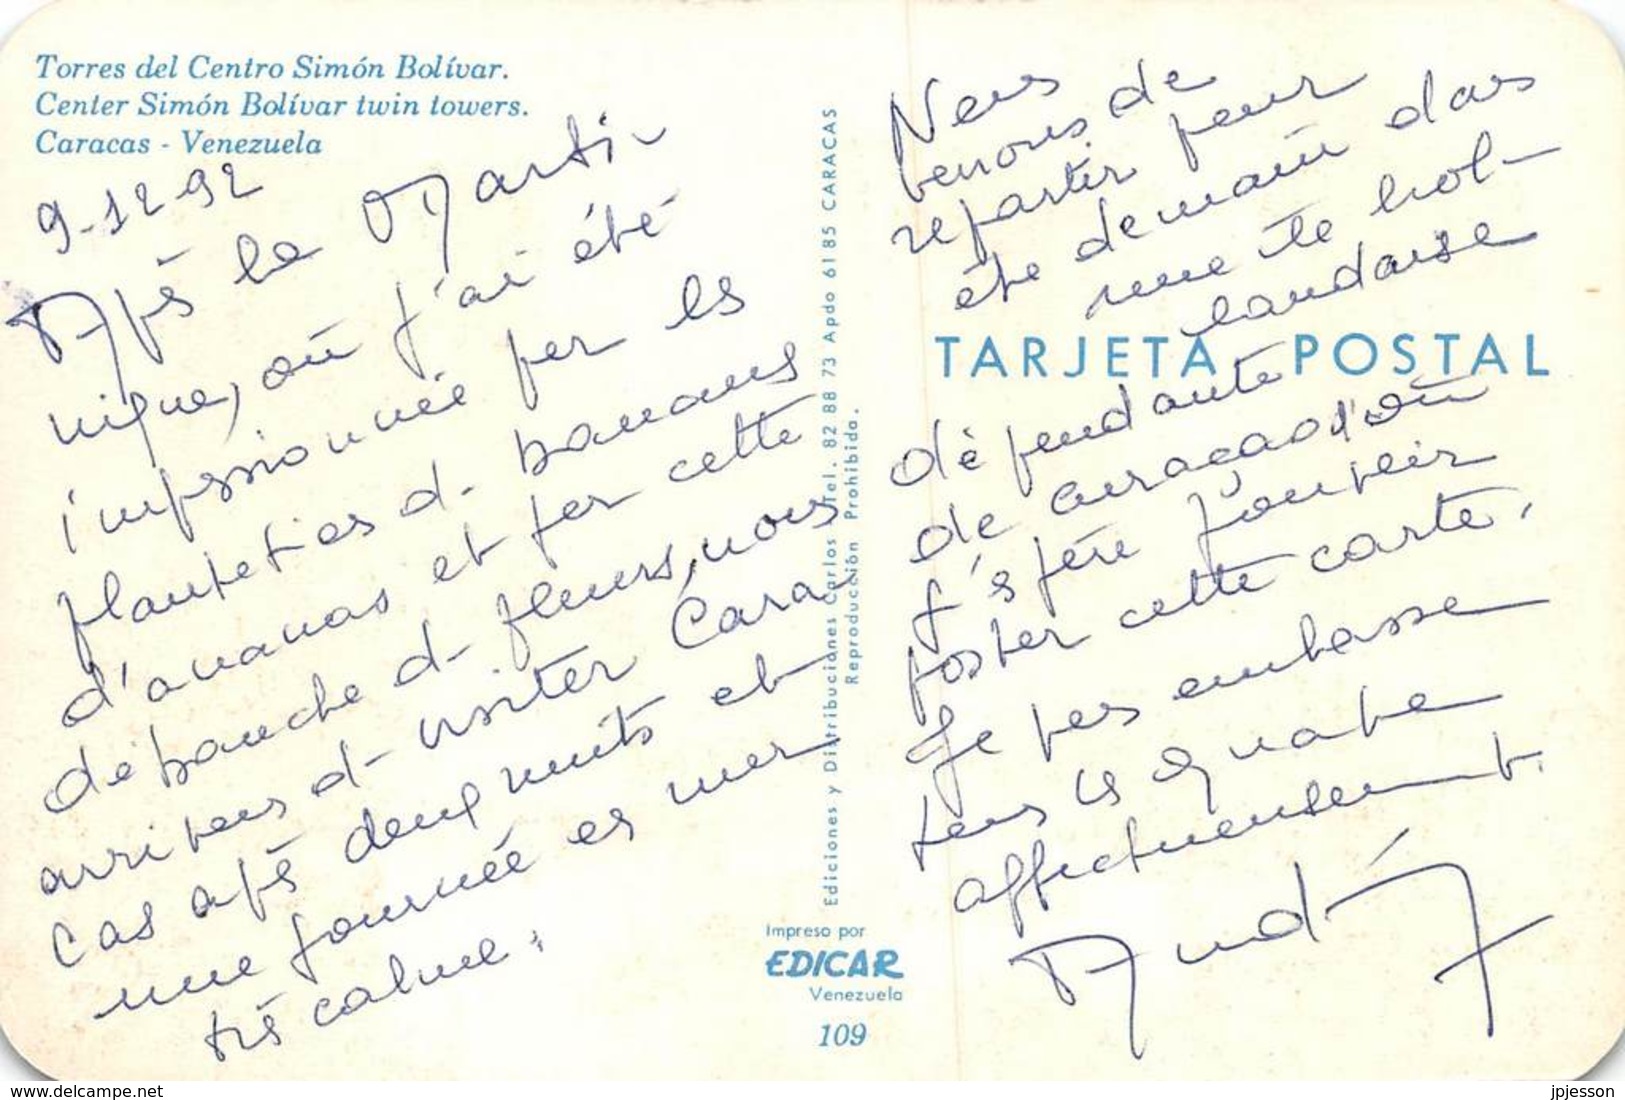 Torres del Centro Simón Bolívar.
Center Simón Bolívar twin towers.
Caracas - Venezuela
9-12-92
Après la Marti-
nique, où j'ai été
impressionnée par les
plantations d- bananes
d'ananas et par cette
débauche d- fleurs, nous
arrivons d- visiter Cara
cas après deux nuits et
une journée en mer
très calme.
Ediciones y Distribuciones Carlos Tel. 82 88 73 Apdo 61 85 CARACAS
Reproducción Prohibida.
Impreso por
EDICAR
Venezuela
109
Nous
venons de
repartir pour
être demain dans
une île hol-
landaise
TARJETA POSTAL
dépendante
de curacao d'où
j'espère pouvoir
poster cette carte.
Je vous embrasse
tous les quatre
affectueusement.
delcampe.net
jpjesson